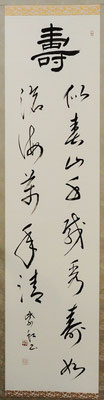 壽
似春山千歲秀壽如
滄海萬年清